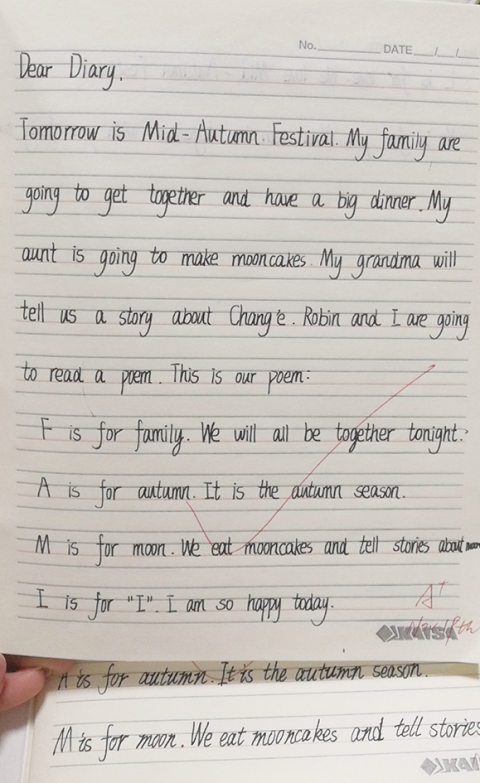 No. DATE / /
Dear Diary,
Tomorrow is Mid-Autumn Festival. My family are
going to get together and have a big dinner. My
aunt is going to make mooncakes. My grandma will
tell us a story about Chang'e. Robin and I are going
to read a poem. This is our poem:
F is for family. We will all be together tonight.
A is for autumn. It is the autumn season.
M is for moon. We eat mooncakes and tell stories about
I is for "I". I am so happy today.
A+
A is for autumn. It is the autumn season.
M is for moon. We eat mooncakes and tell stories